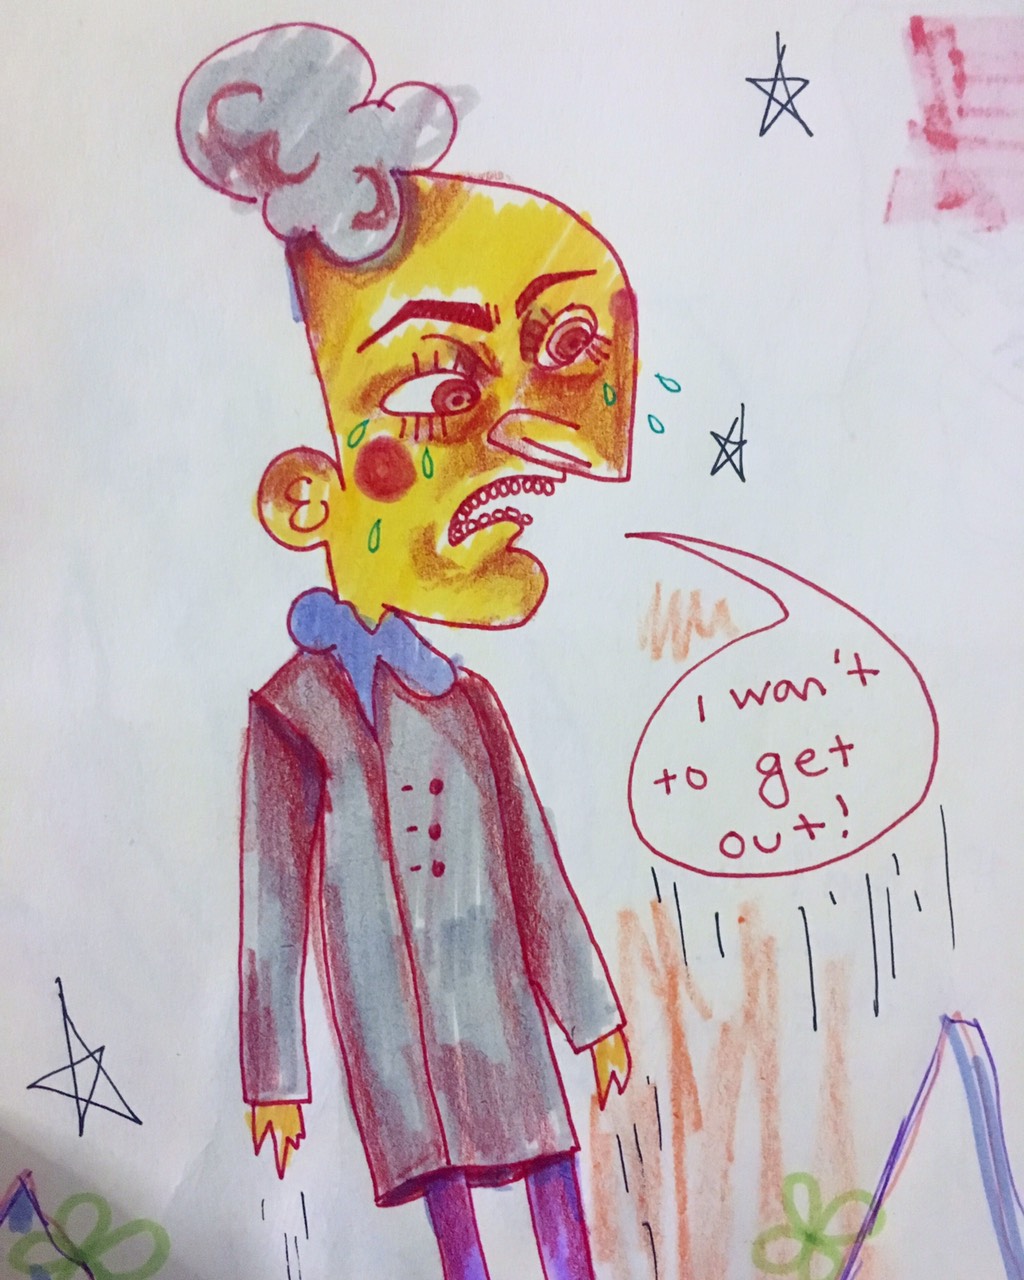 I wan't
to get
out!